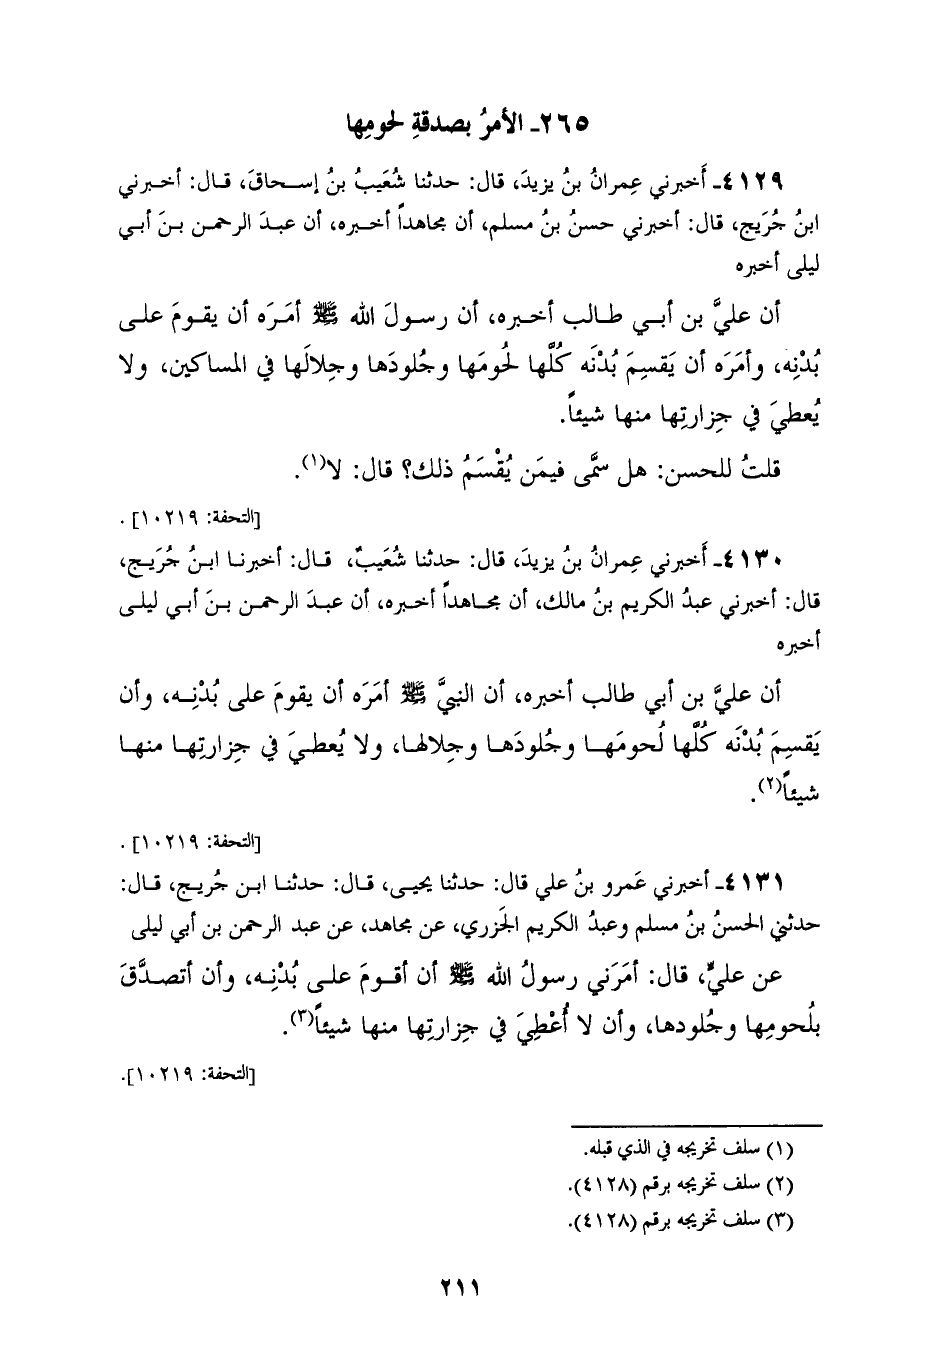 ٢٦٥ـ الأمرُ بصدقةِ لحومِها
٤١٢٩ـ أَخبرني عِمرانُ بنُ يزيدَ، قال: حدثنا شُعَيبُ بنُ إسـحاقَ، قـال: أخـبرني
ابنُ جُرَيج، قال: أخبرني حسنُ بنُ مسلم، أن مجاهداً أخـبره، أن عبـدَ الرحمـن بـنَ أبي
ليلى أخبره
أن عليَّ بن أبـي طـالب أخـبره، أن رسـولَ الله ﷺ أمَـرَه أن يقـومَ علـى
بُدْنِه، وأمَرَه أن يَقسِمَ بُدْنَه كُلَّها لُحومَها وجُلودَها وجِلالَها في المساكين، ولا
يُعطيَ في جِزارتِها منها شيئاً.
قلتُ للحسن: هل سمَّى فيمَن يُقْسَمُ ذلك؟ قال: لا(١).
[التحفة: ١٠٢١٩] .
٤١٣٠ـ أَخبرني عِمرانُ بنُ يزيدَ، قال: حدثنا شُعَيبٌ، قـال: أخبرنـا ابـنُ جُرَيـج،
قال: أخبرني عبدُ الكريم بنُ مالك، أن مجـاهداً أخـبره، أن عبـدَ الرحمـن بـنَ أبي ليلـى
أخبره
أن عليَّ بن أبي طالب أخبره، أن النبيَّ ﷺ أمَرَه أن يقومَ على بُدْنِـه، وأن
يَقسِمَ بُدْنَه كُلَّها لُحومَهـا وجُلودَهـا وجِلالها، ولا يُعطـيَ في جِزارتِهـا منهـا
شيئاً(٢).
[التحفة: ١٠٢١٩] .
٤١٣١ـ أخبرني عَمرو بنُ علي قال: حدثنا يحيى، قـال: حدثنـا ابـن جُريـج، قـال:
حدثني الحسنُ بنُ مسلم وعبدُ الكريم الجَزري، عن مجاهد، عن عبد الرحمن بن أبي ليلى
عن عليٍّ، قال: أمَرَني رسولُ الله ﷺ أن أقـومَ علـى بُدْنِـه، وأن أتصـدَّقَ
بلُحومِها وجُلودها، وأن لا أُعْطِيَ في جِزارتِها منها شيئاً(٣).
[التحفة: ١٠٢١٩].
(١) سلف تخريجه في الذي قبله.
(٢) سلف تخريجه برقم (٤١٢٨).
(٣) سلف تخريجه برقم (٤١٢٨).
٢١١